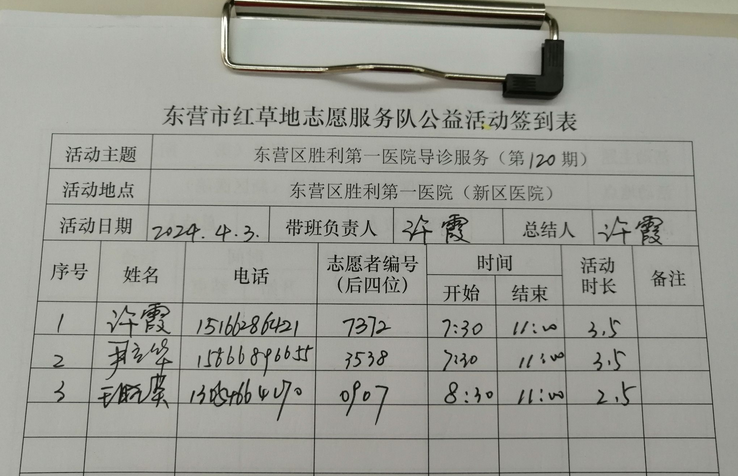 东营市红草地志愿服务队公益活动签到表
活动主题 东营区胜利第一医院导诊服务（第120期）
活动地点 东营区胜利第一医院（新区医院）
活动日期 2024.4.3. 带班负责人 许霞 总结人 许霞
序号 姓名 电话 志愿者编号（后四位） 时间 开始 结束 活动时长 备注
1 许霞 15166286421 7372 7:30 11:00 3.5
2 15866896655 3538 7:30 11:00 3.5
3 0907 8:30 11:00 2.5